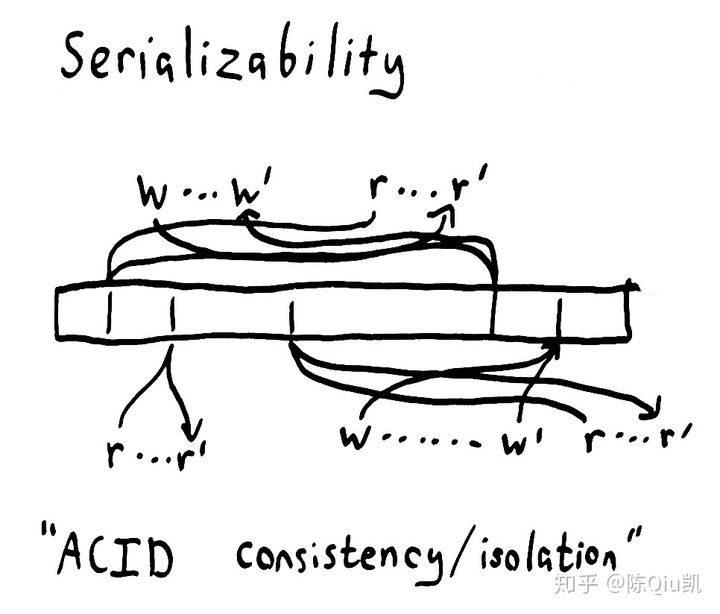 Serializability
w...w' r...r'
r...r' w.......w' r...r'
"ACID consistency/isolation"
知乎 @陈Qiu凯